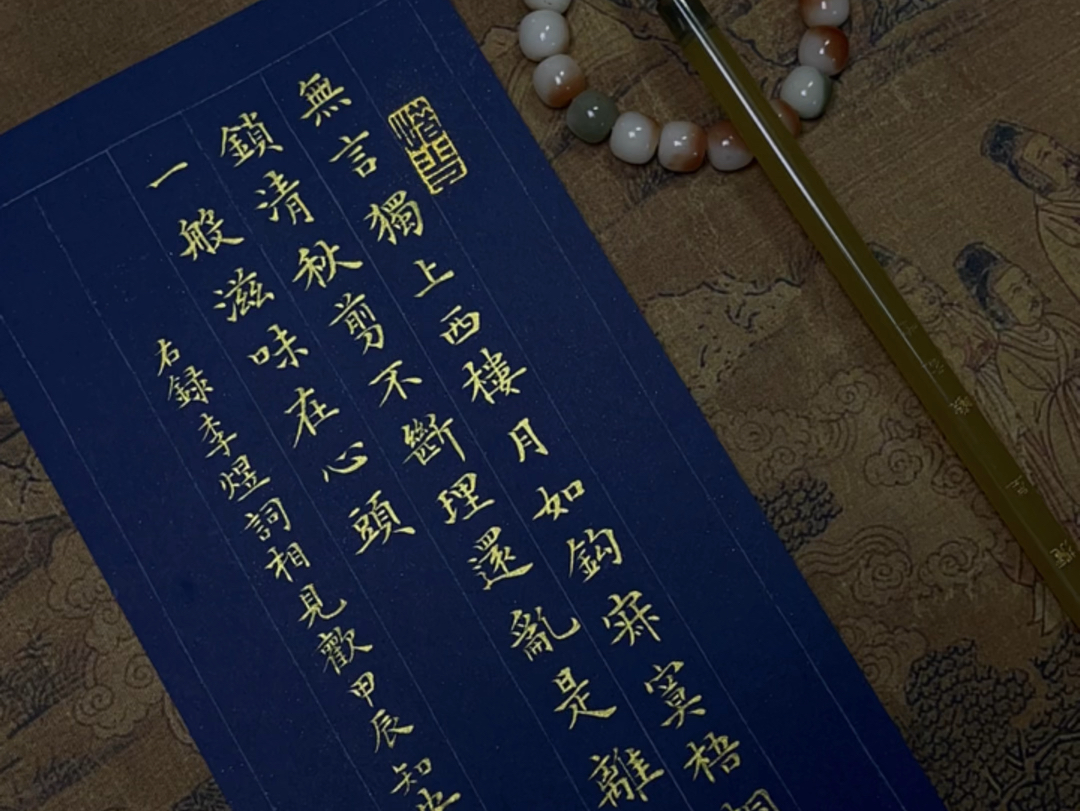 無言獨上西樓月如鈎寂寞梧桐
鎖清秋剪不斷理還亂是離
一般滋味在心頭
右録李煜詞相見歡甲辰知